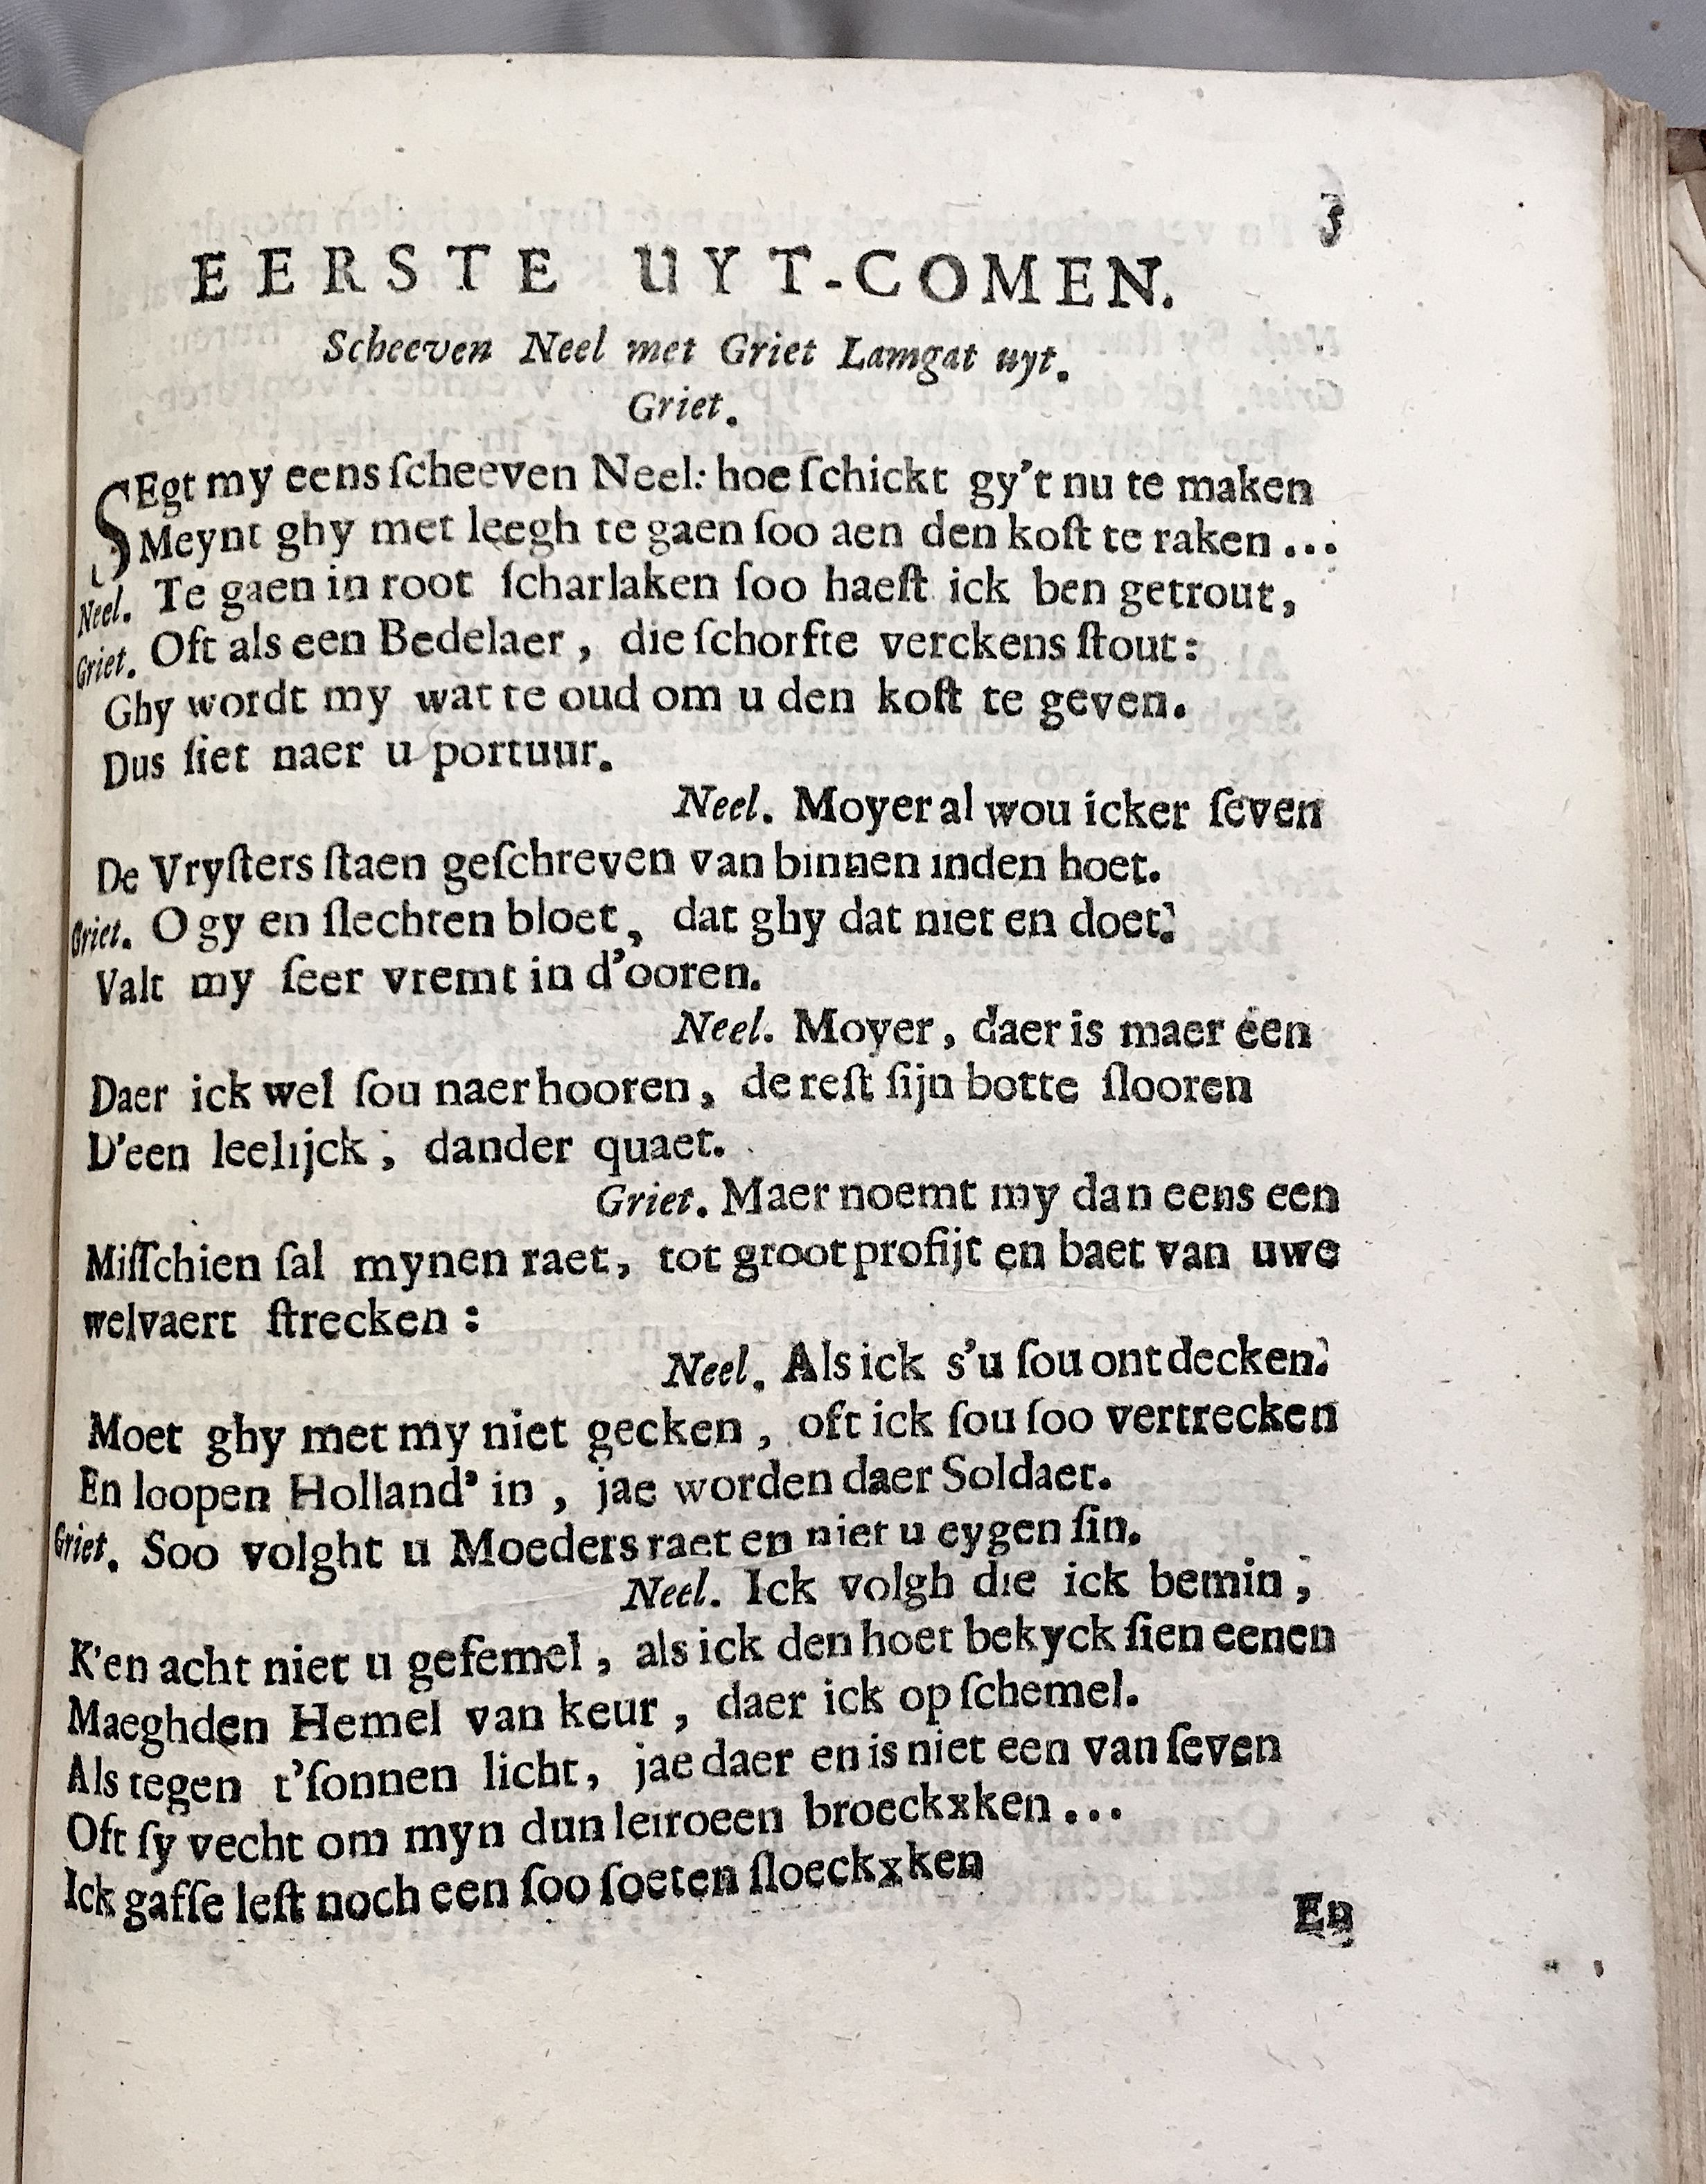 3
EERSTE UYT-COMEN.
Scheeven Neel met Griet Lamgat uyt.
Griet.
SEgt my eens ſcheeven Neel: hoe ſchickt gy't nu te maken
Meynt ghy met leegh te gaen ſoo aen den koſt te raken...
Neel. Te gaen in root ſcharlaken ſoo haeſt ick ben getrout,
Griet. Oft als een Bedelaer, die ſchorfte verckens ſtout:
Ghy wordt my wat te oud om u den koſt te geven.
Dus ſiet naer u portuur.
Neel. Moyer al wou icker ſeven
De Vryſters ſtaen geſchreven van binnen inden hoet.
Griet. O gy en ſlechten bloet, dat ghy dat niet en doet;
Valt my ſeer vremt in d'ooren.
Neel. Moyer, daer is maer één
Daer ick wel ſou naer hooren, de reſt ſijn botte ſlooren
D'een leelijck; dander quaet.
Griet. Maer noemt my dan eens een
Miſſchien ſal mynen raet, tot groot profijt en baet van uwe
welvaert ſtrecken:
Neel. Als ick s'u ſou ontdecken;
Moet ghy met my niet gecken, oft ick ſou ſoo vertrecken
En loopen Holland' in, jae worden daer Soldaet.
Griet. Soo volght u Moeders raet en niet u eygen ſin.
Neel. Ick volgh die ick bemin;
K'en acht niet u gefemel, als ick den hoet bekyck ſien eenen
Maeghden Hemel van keur, daer ick op ſchemel.
Als tegen t'ſonnen licht, jae daer en is niet een van ſeven
Oft ſy vecht om myn dun leiroeen broeckxken...
Ick gafſe leſt noch een ſoo ſoeten ſloeckxken
En